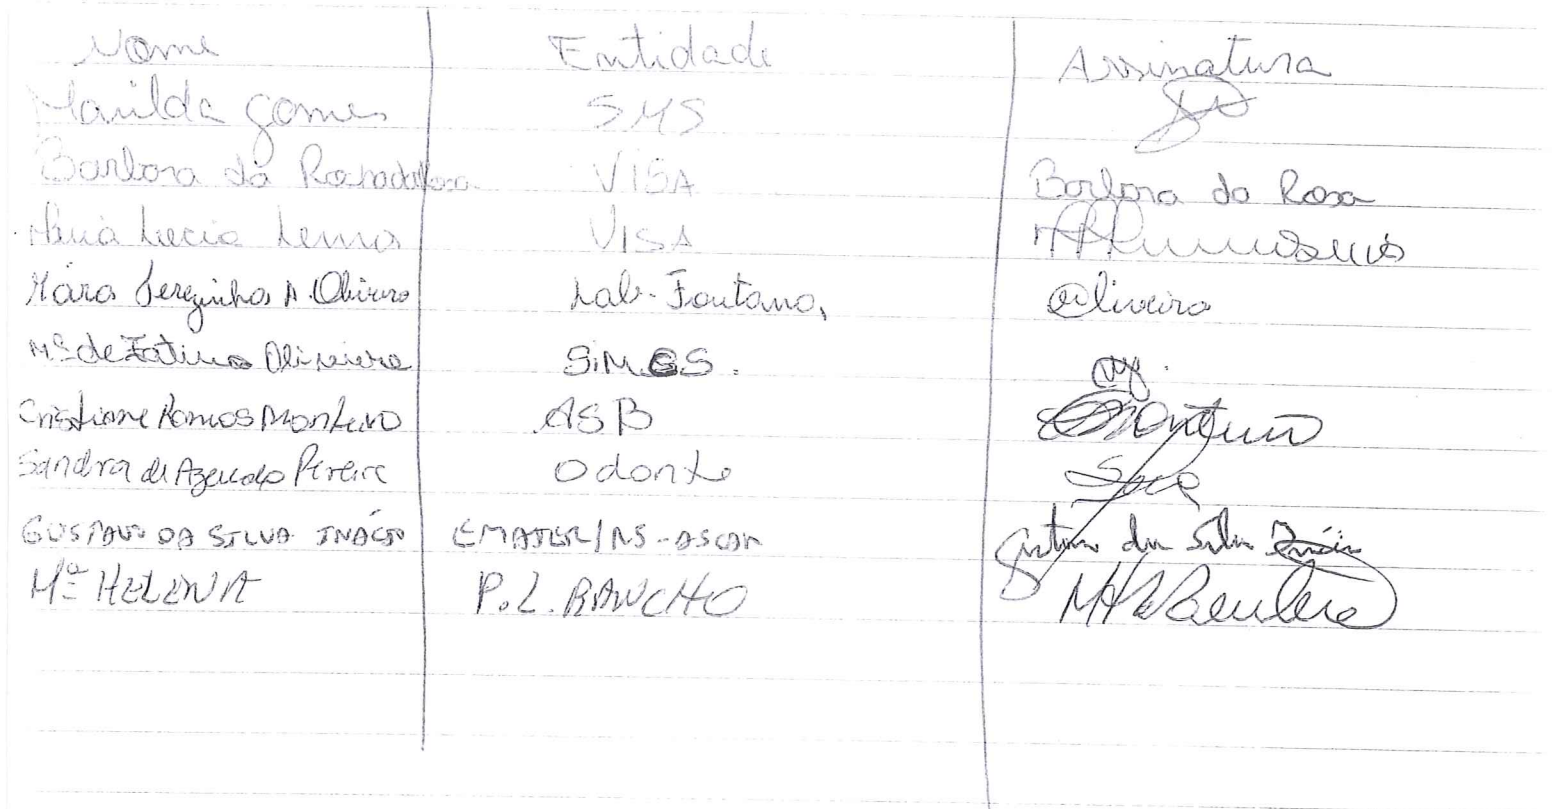 Nome Entidade Assinatura
Marilda Gomes SMS
Barbora da Rosa VISA Barbora da Rosa
Maria Lucia Lemos VISA
Mára Terezinha A. Oliveira Lab. Fontana, Oliveira
Mª de Fatima Oliveira S.M.S.
Cristiane Ramos Monteiro ASB Monteiro
Sandra de Azevedo Pereira Odonto
GUSTAVO DA SILVA INÁCIO EMATER/RS-ASCAR Gustavo da Silva Inácio
Mª HELENA P.L. RANCHO